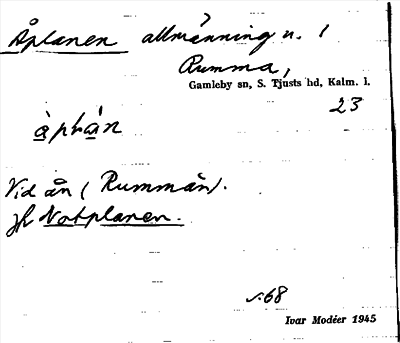 Åplanen allmänning u. 1
Rumma,
Gamleby sn, S. Tjusts hd, Kalm. l.
23
àplàn
Vid ån (Rummån).
jfr Notplanen.
s:68
Ivar Modéer 1945